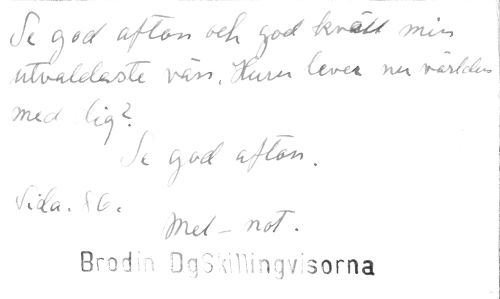 Se god afton och god kväll min
utvaldaste vän. Huru lever nu världen
med dig?
Se god afton.
Sida. 86.
Mel-not.
Brodin DgSkillingvisorna